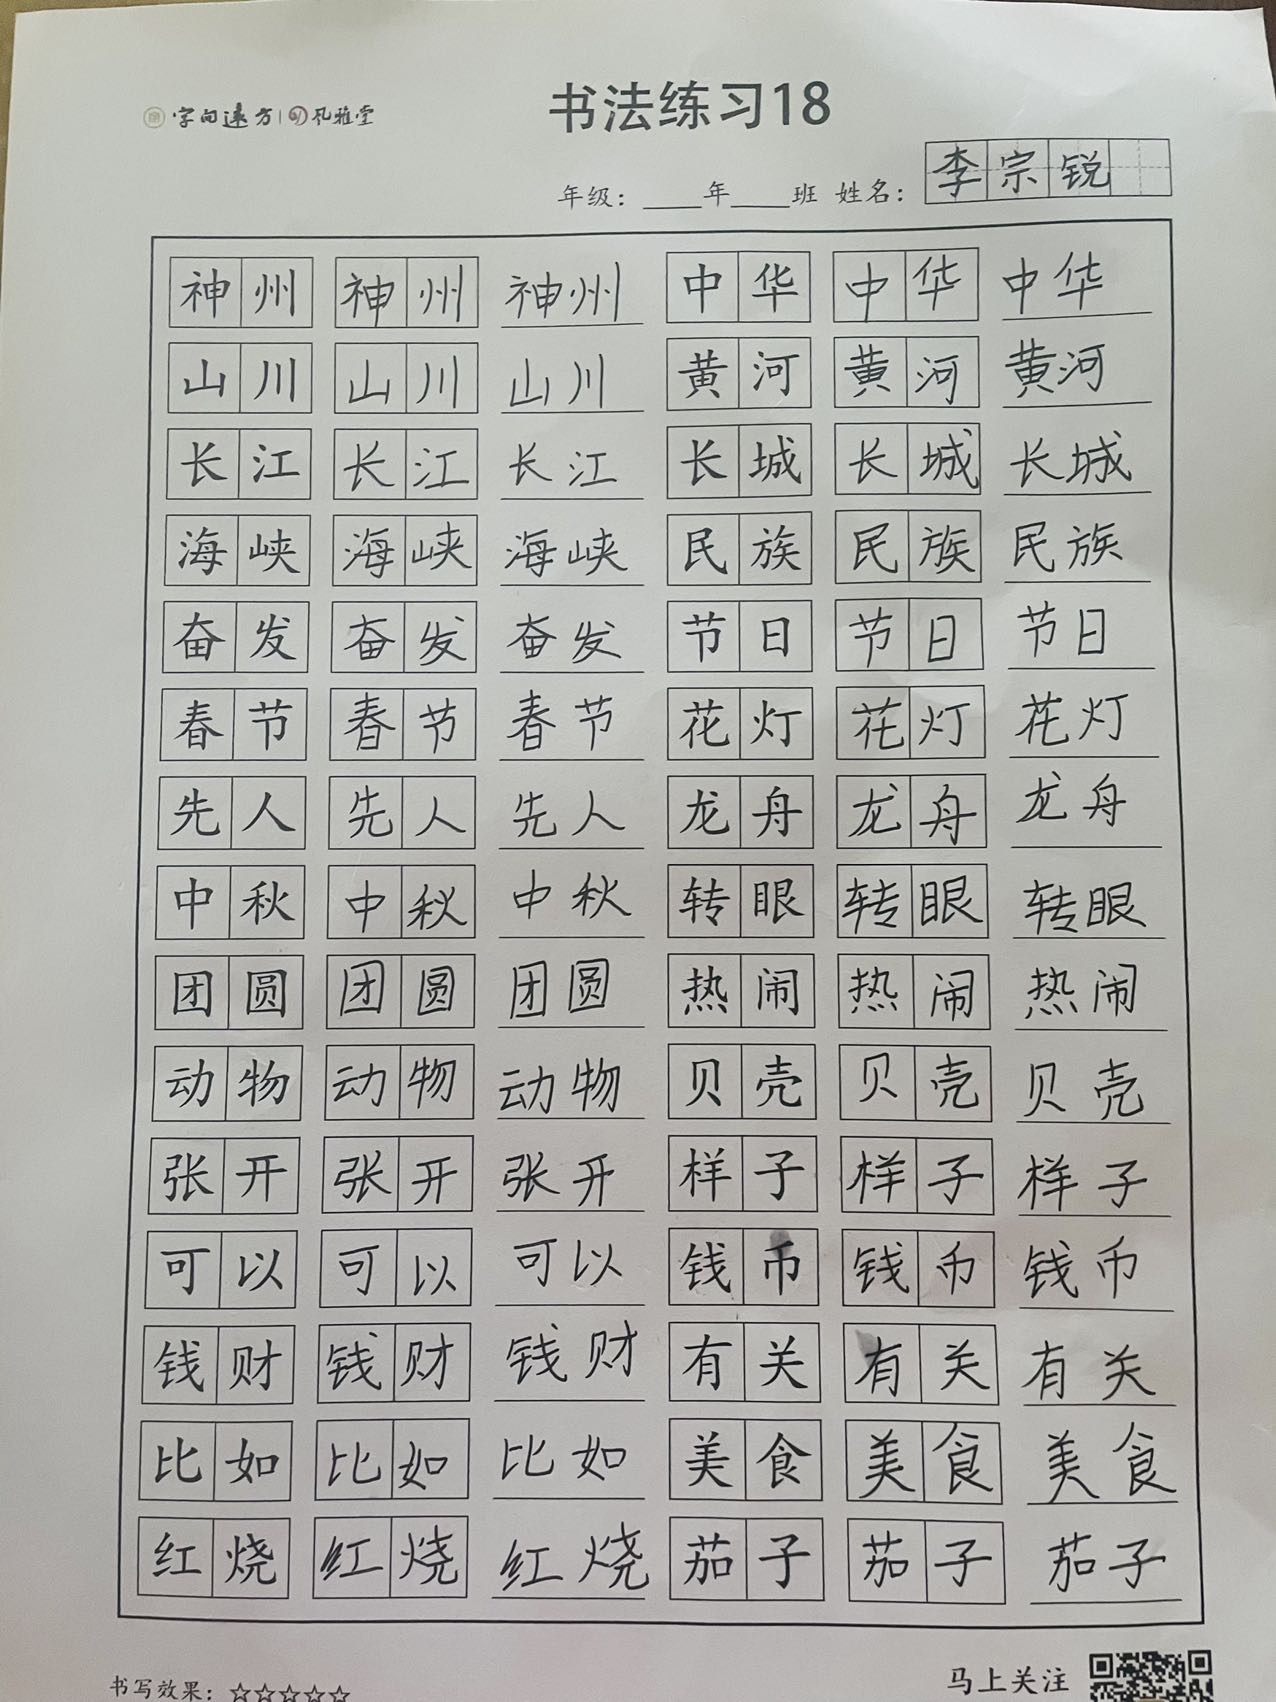 字向远方 孔雅堂
书法练习18
年级：____年____班 姓名：李宗锐
神州 神州 神州 中华 中华 中华
山川 山川 山川 黄河 黄河 黄河
长江 长江 长江 长城 长城 长城
海峡 海峡 海峡 民族 民族 民族
奋发 奋发 奋发 节日 节日 节日
春节 春节 春节 花灯 花灯 花灯
先人 先人 先人 龙舟 龙舟 龙舟
中秋 中秋 中秋 转眼 转眼 转眼
团圆 团圆 团圆 热闹 热闹 热闹
动物 动物 动物 贝壳 贝壳 贝壳
张开 张开 张开 样子 样子 样子
可以 可以 可以 钱币 钱币 钱币
钱财 钱财 钱财 有关 有关 有关
比如 比如 比如 美食 美食 美食
红烧 红烧 红烧 茄子 茄子 茄子
书写效果：☆☆☆☆☆ 马上关注